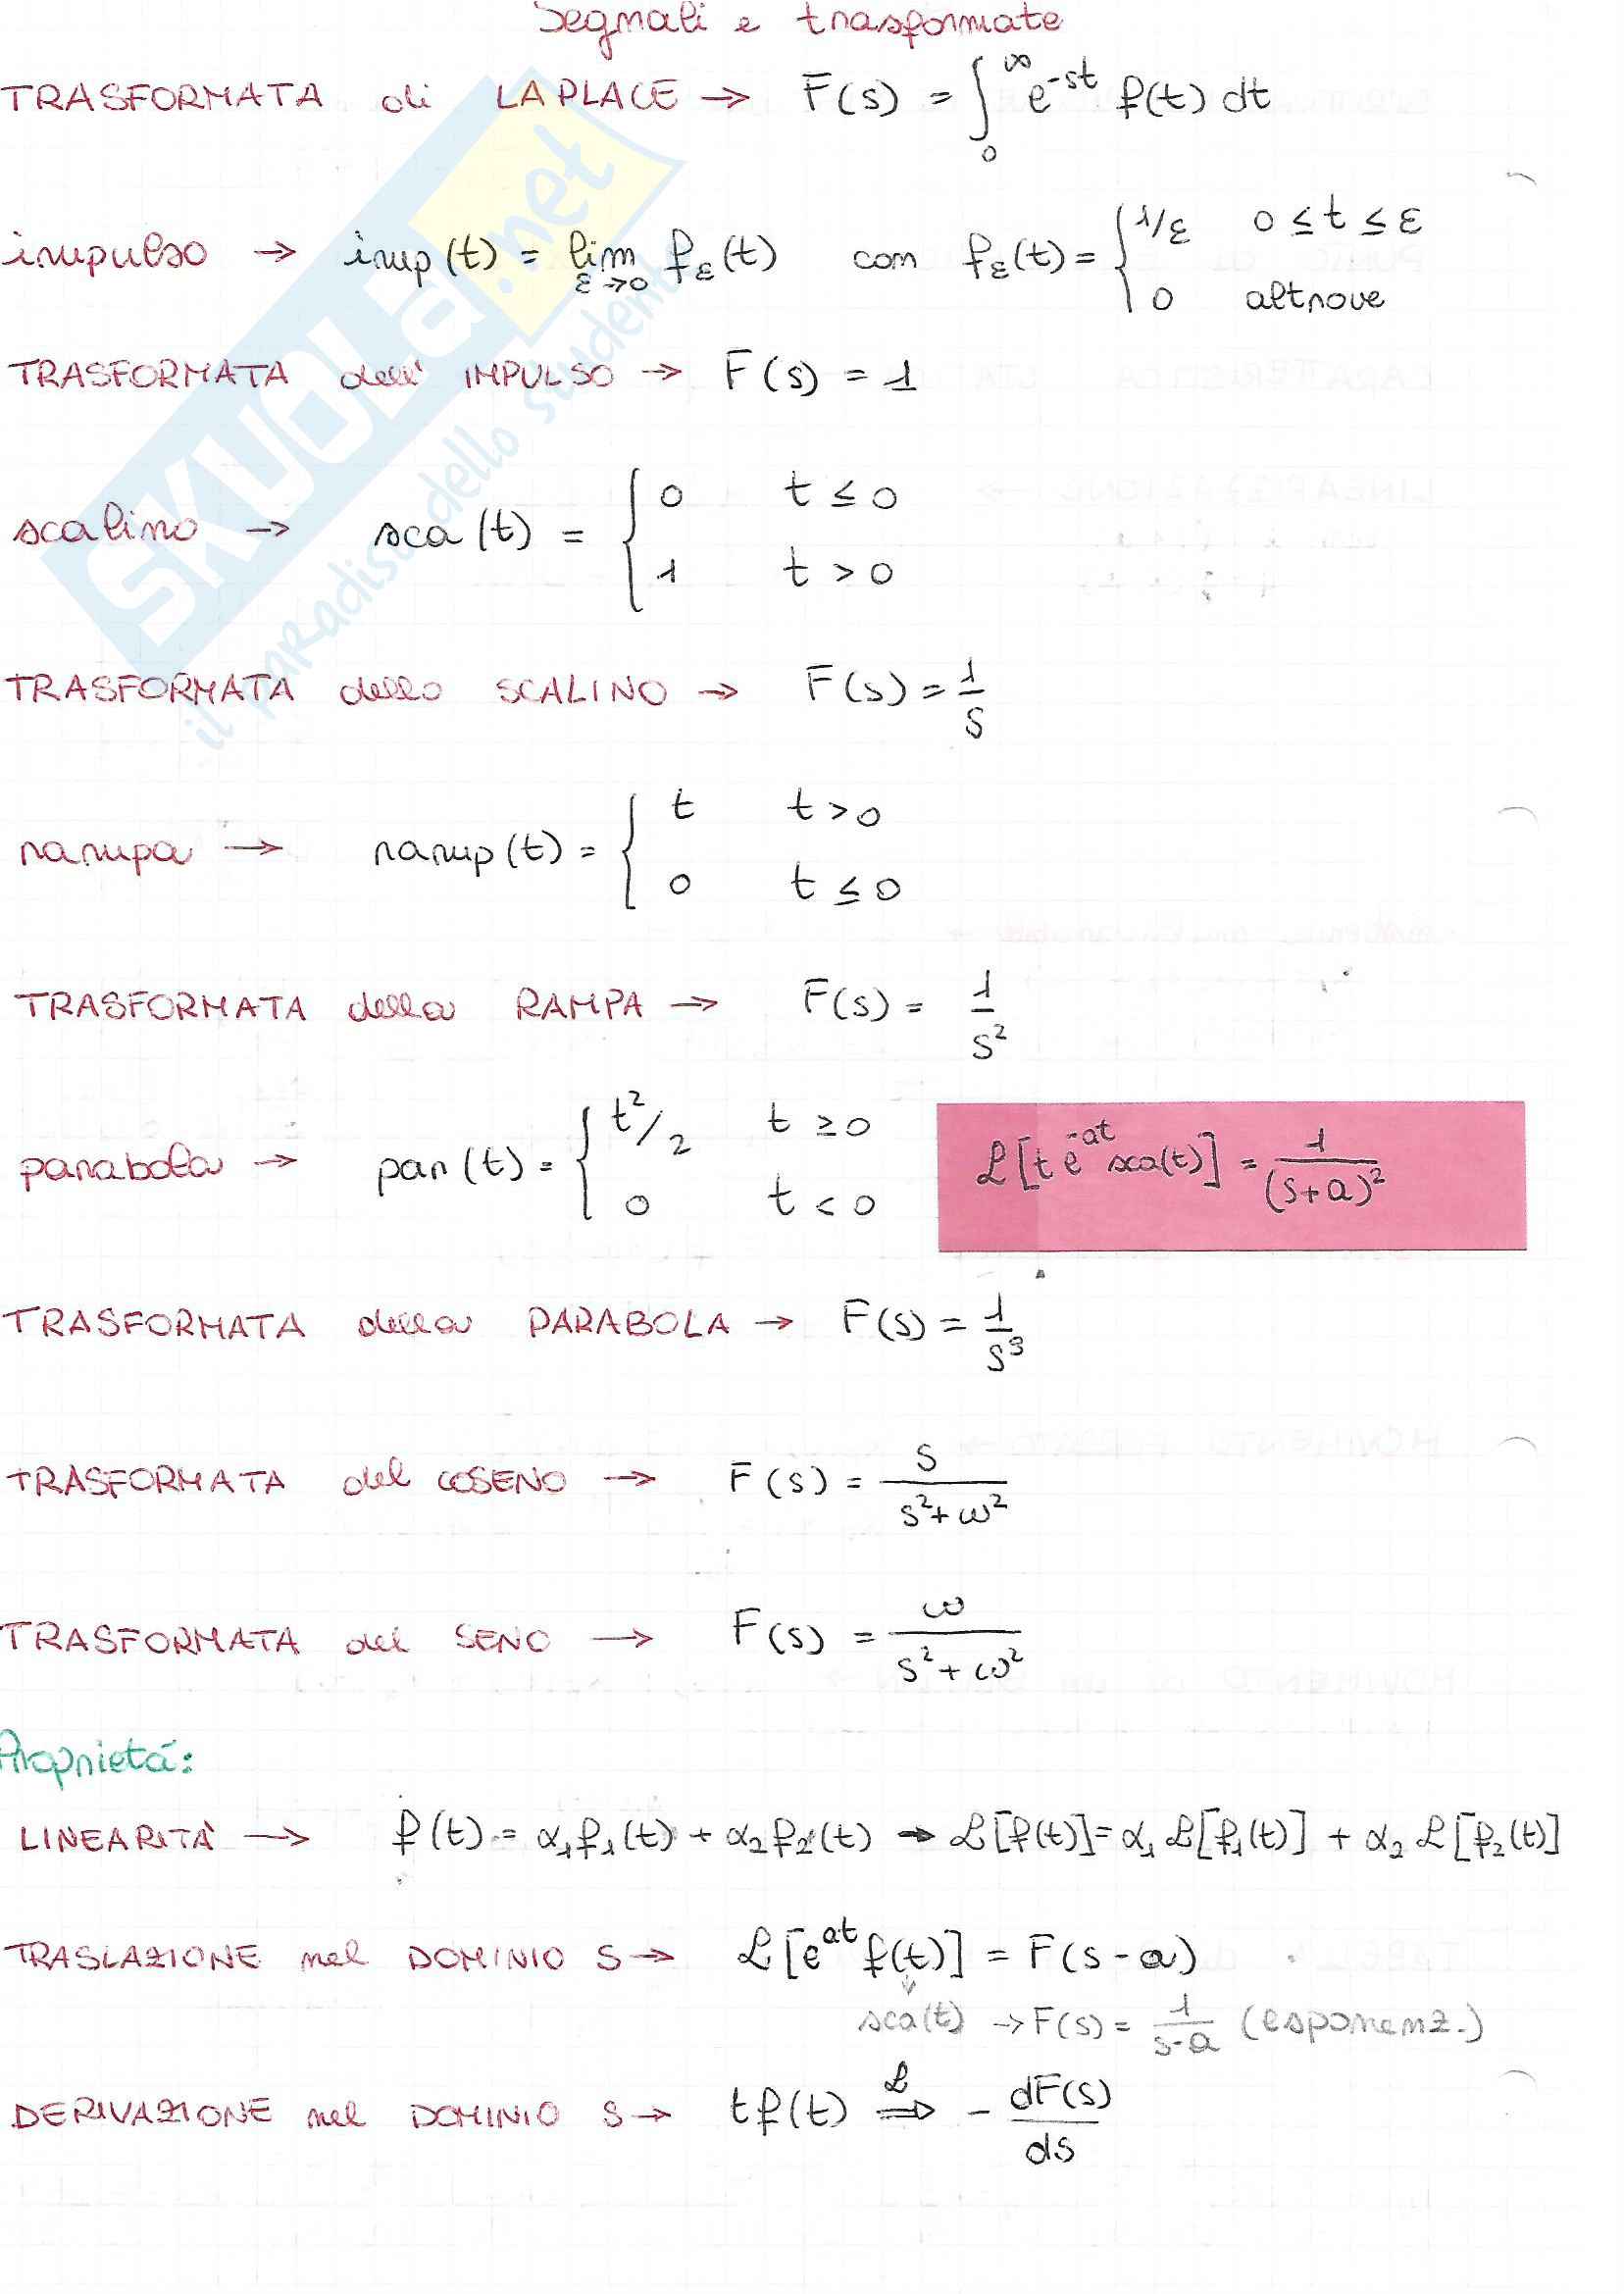 Segnali e trasformate
TRASFORMATA di LAPLACE → F(s) = ∫₀^∞ e^-st f(t) dt
impulso → imp(t) = lim ε→0 fε(t) con fε(t) = { 1/ε 0 ≤ t ≤ ε
0 altrove
TRASFORMATA dell' IMPULSO → F(s) = 1
scalino → sca(t) = { 0 t ≤ 0
1 t > 0
TRASFORMATA dello SCALINO → F(s) = 1/s
rampa → ramp(t) = { t t > 0
0 t ≤ 0
TRASFORMATA della RAMPA → F(s) = 1/s²
parabola → par(t) = { t²/2 t ≥ 0
0 t < 0
ℒ[t e^-at sca(t)] = 1/(s+a)²
TRASFORMATA della PARABOLA → F(s) = 1/s³
TRASFORMATA del COSENO → F(s) = s/(s²+ω²)
TRASFORMATA del SENO → F(s) = ω/(s²+ω²)
Proprietá:
LINEARITÀ → f(t) = α₁f₁(t) + α₂f₂(t) → ℒ[f(t)] = α₁ ℒ[f₁(t)] + α₂ ℒ[f₂(t)]
TRASLAZIONE nel DOMINIO S → ℒ[e^at f(t)] = F(s-a)
sca(t) → F(s) = 1/(s-a) (esponenz.)
DERIVAZIONE nel DOMINIO S → t f(t) ⇒ℒ - dF(s)/ds
SKUOLa.net
il paradiso dello studente